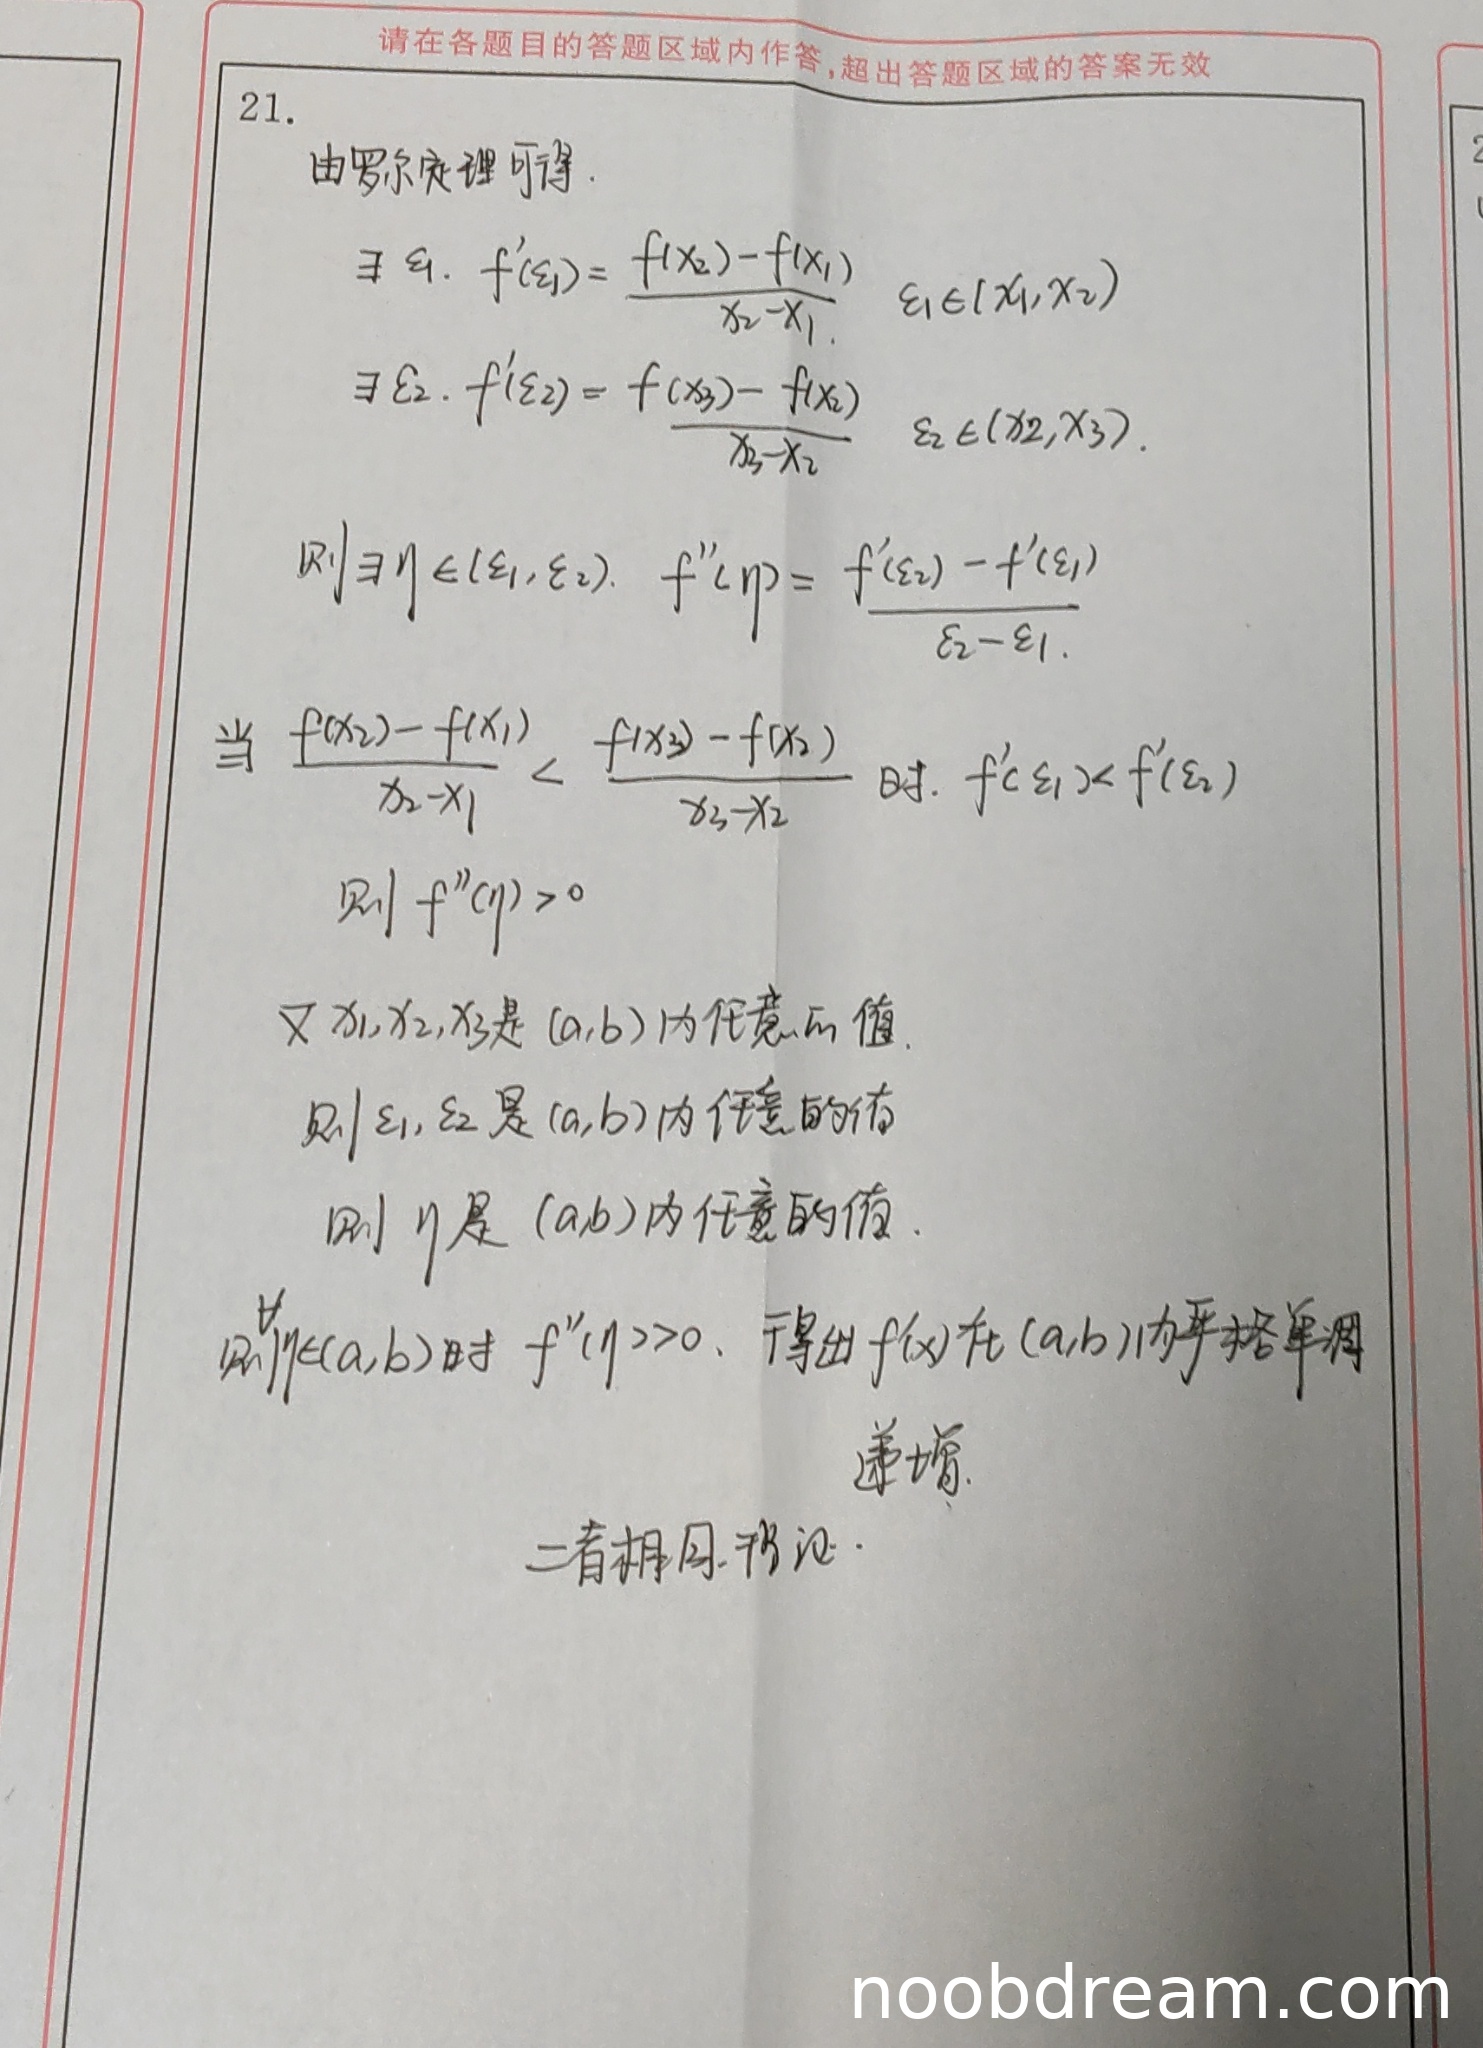 请在各题目的答题区域内作答,超出答题区域的答案无效
21.
由罗尔定理可得.
∃ ε1. f'(ε1) = \frac{f(x2)-f(x1)}{x2-x1}. ε1∈(x1,x2)
∃ ε2. f'(ε2) = \frac{f(x3)-f(x2)}{x3-x2} ε2∈(x2,x3).
则∃η∈(ε1,ε2). f''(η) = \frac{f'(ε2)-f'(ε1)}{ε2-ε1}.
当 \frac{f(x2)-f(x1)}{x2-x1} < \frac{f(x3)-f(x2)}{x3-x2} 时. f'(ε1)<f'(ε2)
则 f''(η)>0
又 x1,x2,x3是(a,b)内任意的值.
则 ε1,ε2是(a,b)内任意的值
则 η是(a,b)内任意的值.
则∀η∈(a,b)时 f''(η)>0、得出f'(x)在(a,b)内严格单调
递增.
二者相同.得证.
noobdream.com